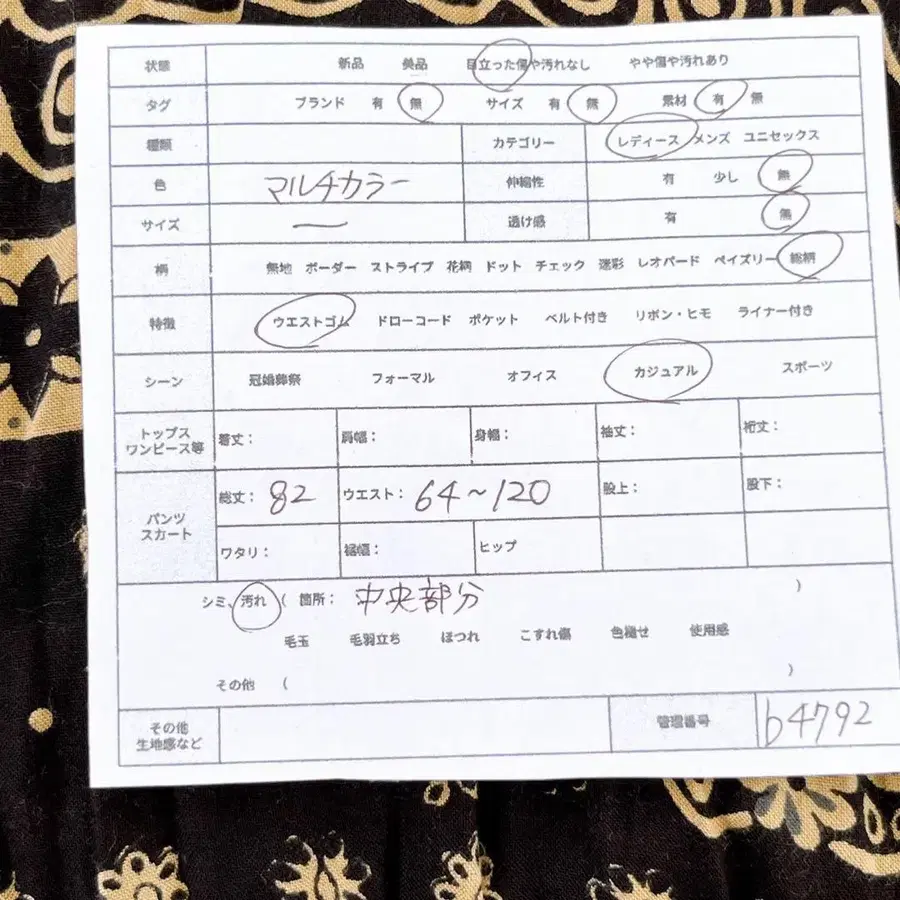 状態 新品 美品 目立った傷や汚れなし やや傷や汚れあり
タグ ブランド 有 無 サイズ 有 無 素材 有 無
種類 カテゴリー レディース メンズ ユニセックス
色 マルチカラー 伸縮性 有 少し 無
サイズ ー 透け感 有 無
柄 無地 ボーダー ストライプ 花柄 ドット チェック 迷彩 レオパード ペイズリー 総柄
特徴 ウエストゴム ドローコード ポケット ベルト付き リボン・ヒモ ライナー付き
シーン 冠婚葬祭 フォーマル オフィス カジュアル スポーツ
トップス
ワンピース等 着丈: 肩幅: 身幅: 袖丈: 裄丈:
パンツ
スカート 総丈: 82 ウエスト: 64~120 股上: 股下:
ワタリ: 裾幅: ヒップ
シミ、汚れ ( 箇所: 中央部分 )
毛玉 毛羽立ち ほつれ こすれ傷 色褪せ 使用感
その他 ( )
その他
生地感など 管理番号 b4792